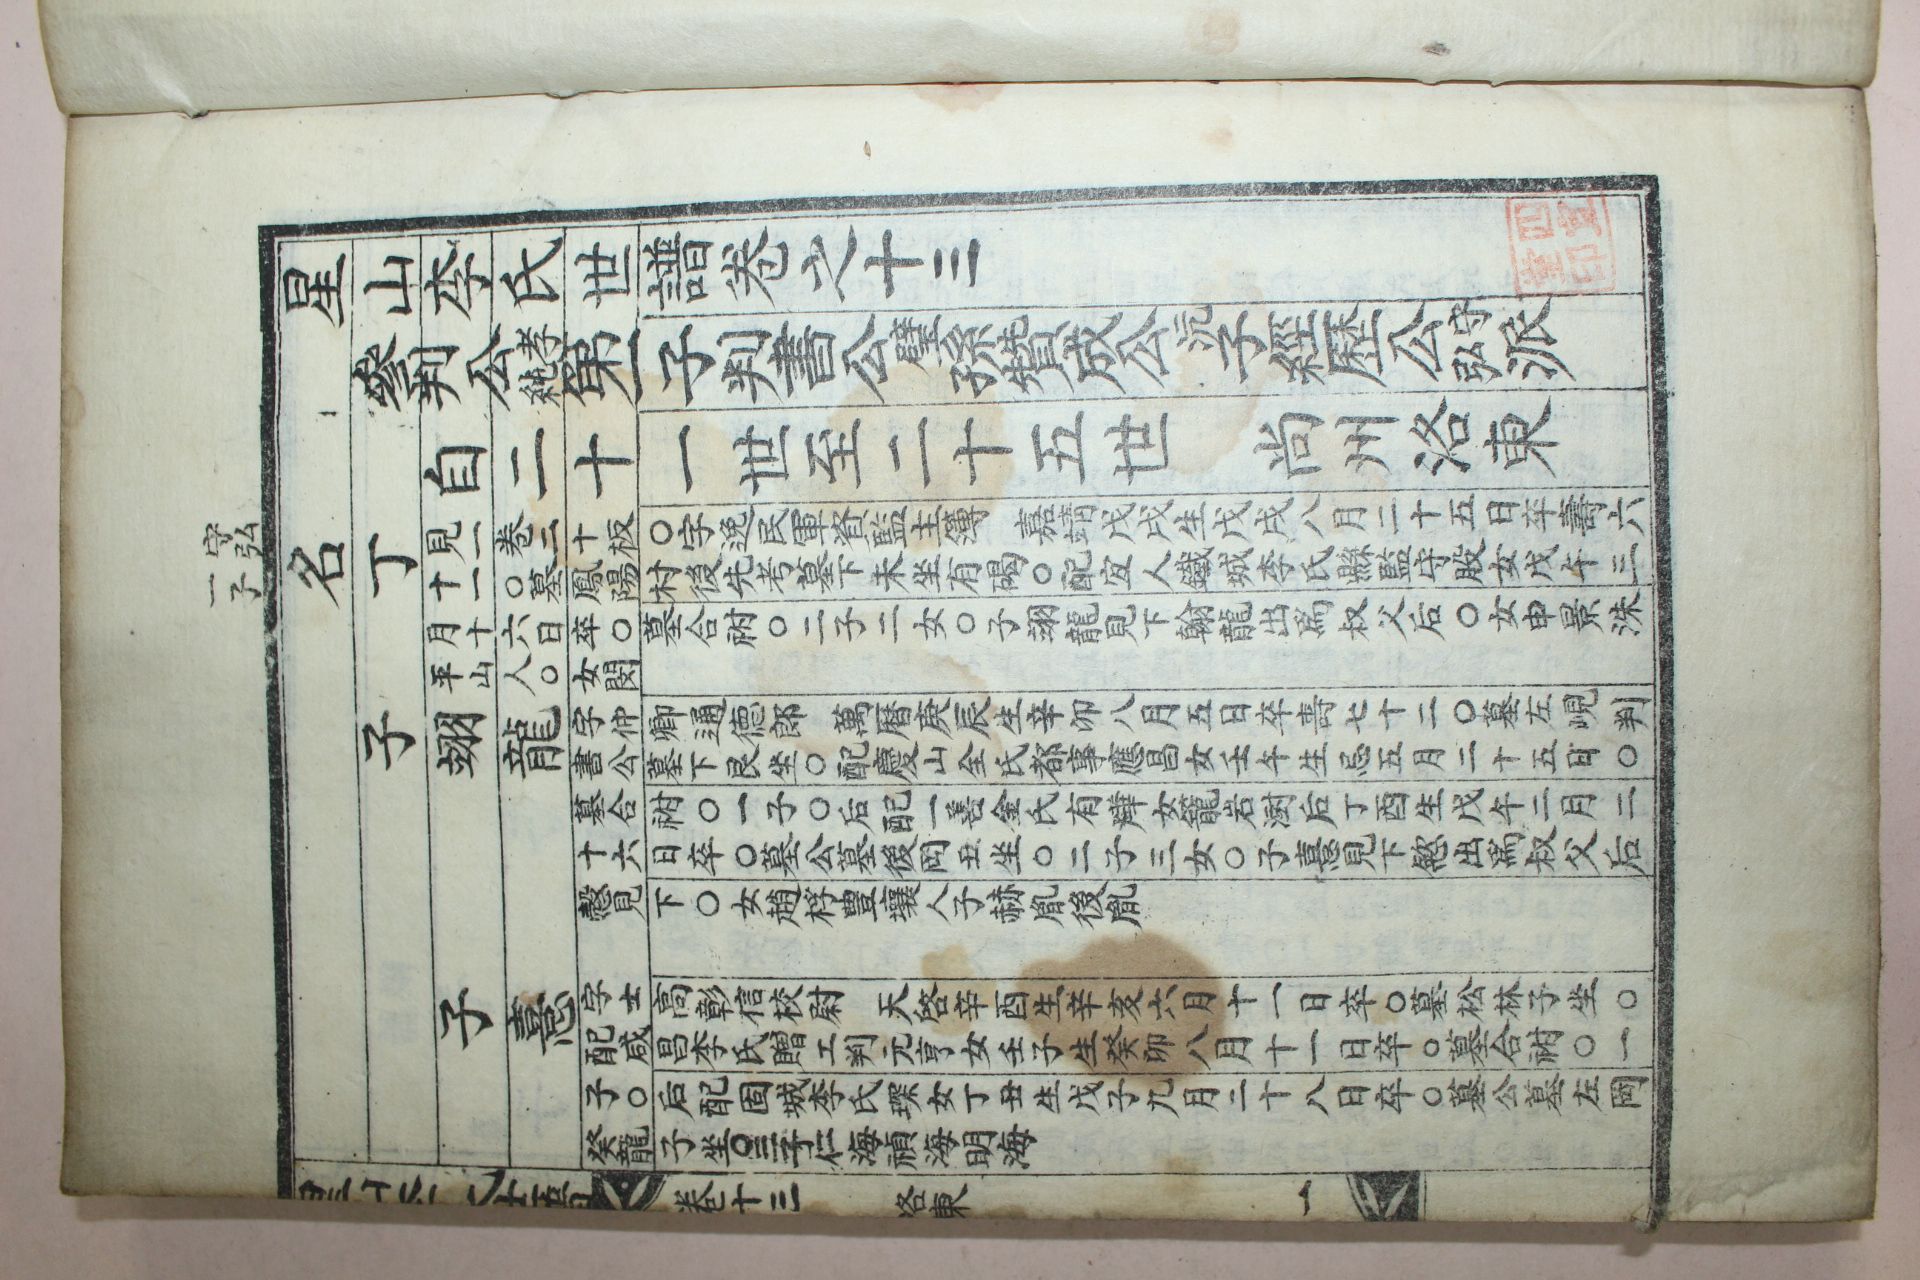 星山李氏世譜卷之十三
參判公孝純第一子判書公壁孫贊成公沆子經歷公守弘派
自二十一世至二十五世 尚州洛東
守弘
一子
名丁 見二卷三十板○字逸民軍資監主簿 嘉靖戊戌生戊戌八月二十五日卒壽六
十一○墓鳳陽村後先考墓下未坐有碣○配宜人鐵城李氏縣監守殷女戊午三
月十六日卒○墓合祔○二子二女○子翊龍見下翰龍出爲叔父后○女申景洙
平山人○女閔
子翊龍 字仲卿通德郎 萬曆庚辰生辛卯八月五日卒壽七十二○墓左峴判
書公墓下艮坐○配慶山全氏都事應昌女壬午生忌五月二十五日○
墓合祔○一子○后配一善金氏有鏵女籠岩澍后丁酉生戊午二月二
十六日卒○墓公墓後岡丑坐○二子三女○子憙見下慜出爲叔父后
慤見下○女趙桴豊壤人子赫胤後胤
子憙 字士高彰信校尉 天啓辛酉生辛亥六月十一日卒○墓松林子坐○
配咸昌李氏贈工判元亨女壬子生癸卯八月十一日卒○墓合祔○一
子○后配固城李氏琛女丁丑生戊子九月二十八日卒○墓公墓左岡
癸龍子坐○三子仁海禎海明海
卷十三 洛東 一